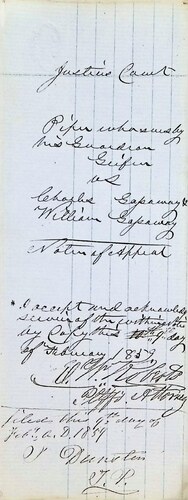 Justices Court
Piper who sues by
his Guardian
Geifer
vs
Charles Gasaway &
William Gasaway
Notice of Appeal
I accept and acknowledge
service of the within notice
by Copy this 9th day
of February 1859
Plffs Attorney
Filed this 9th day of
Feby A.D. 1859
T Dunstin
J.P.